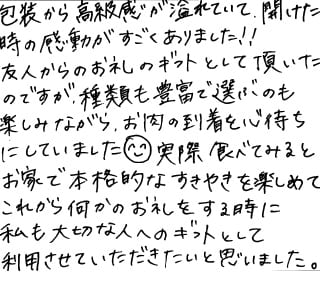 包装から高級感が溢れていて、開けた
時の感動がすごくありました!!
友人からのお礼のギフトとして頂いた
のですが、種類も豊富で選ぶのも
楽しみながら、お肉の到着を心待ち
にしていました😊実際食べてみると
お家で本格的なすきやきを楽しめて
これから何かのお礼をする時に
私も大切な人へのギフトとして
利用させていただきたいと思いました。